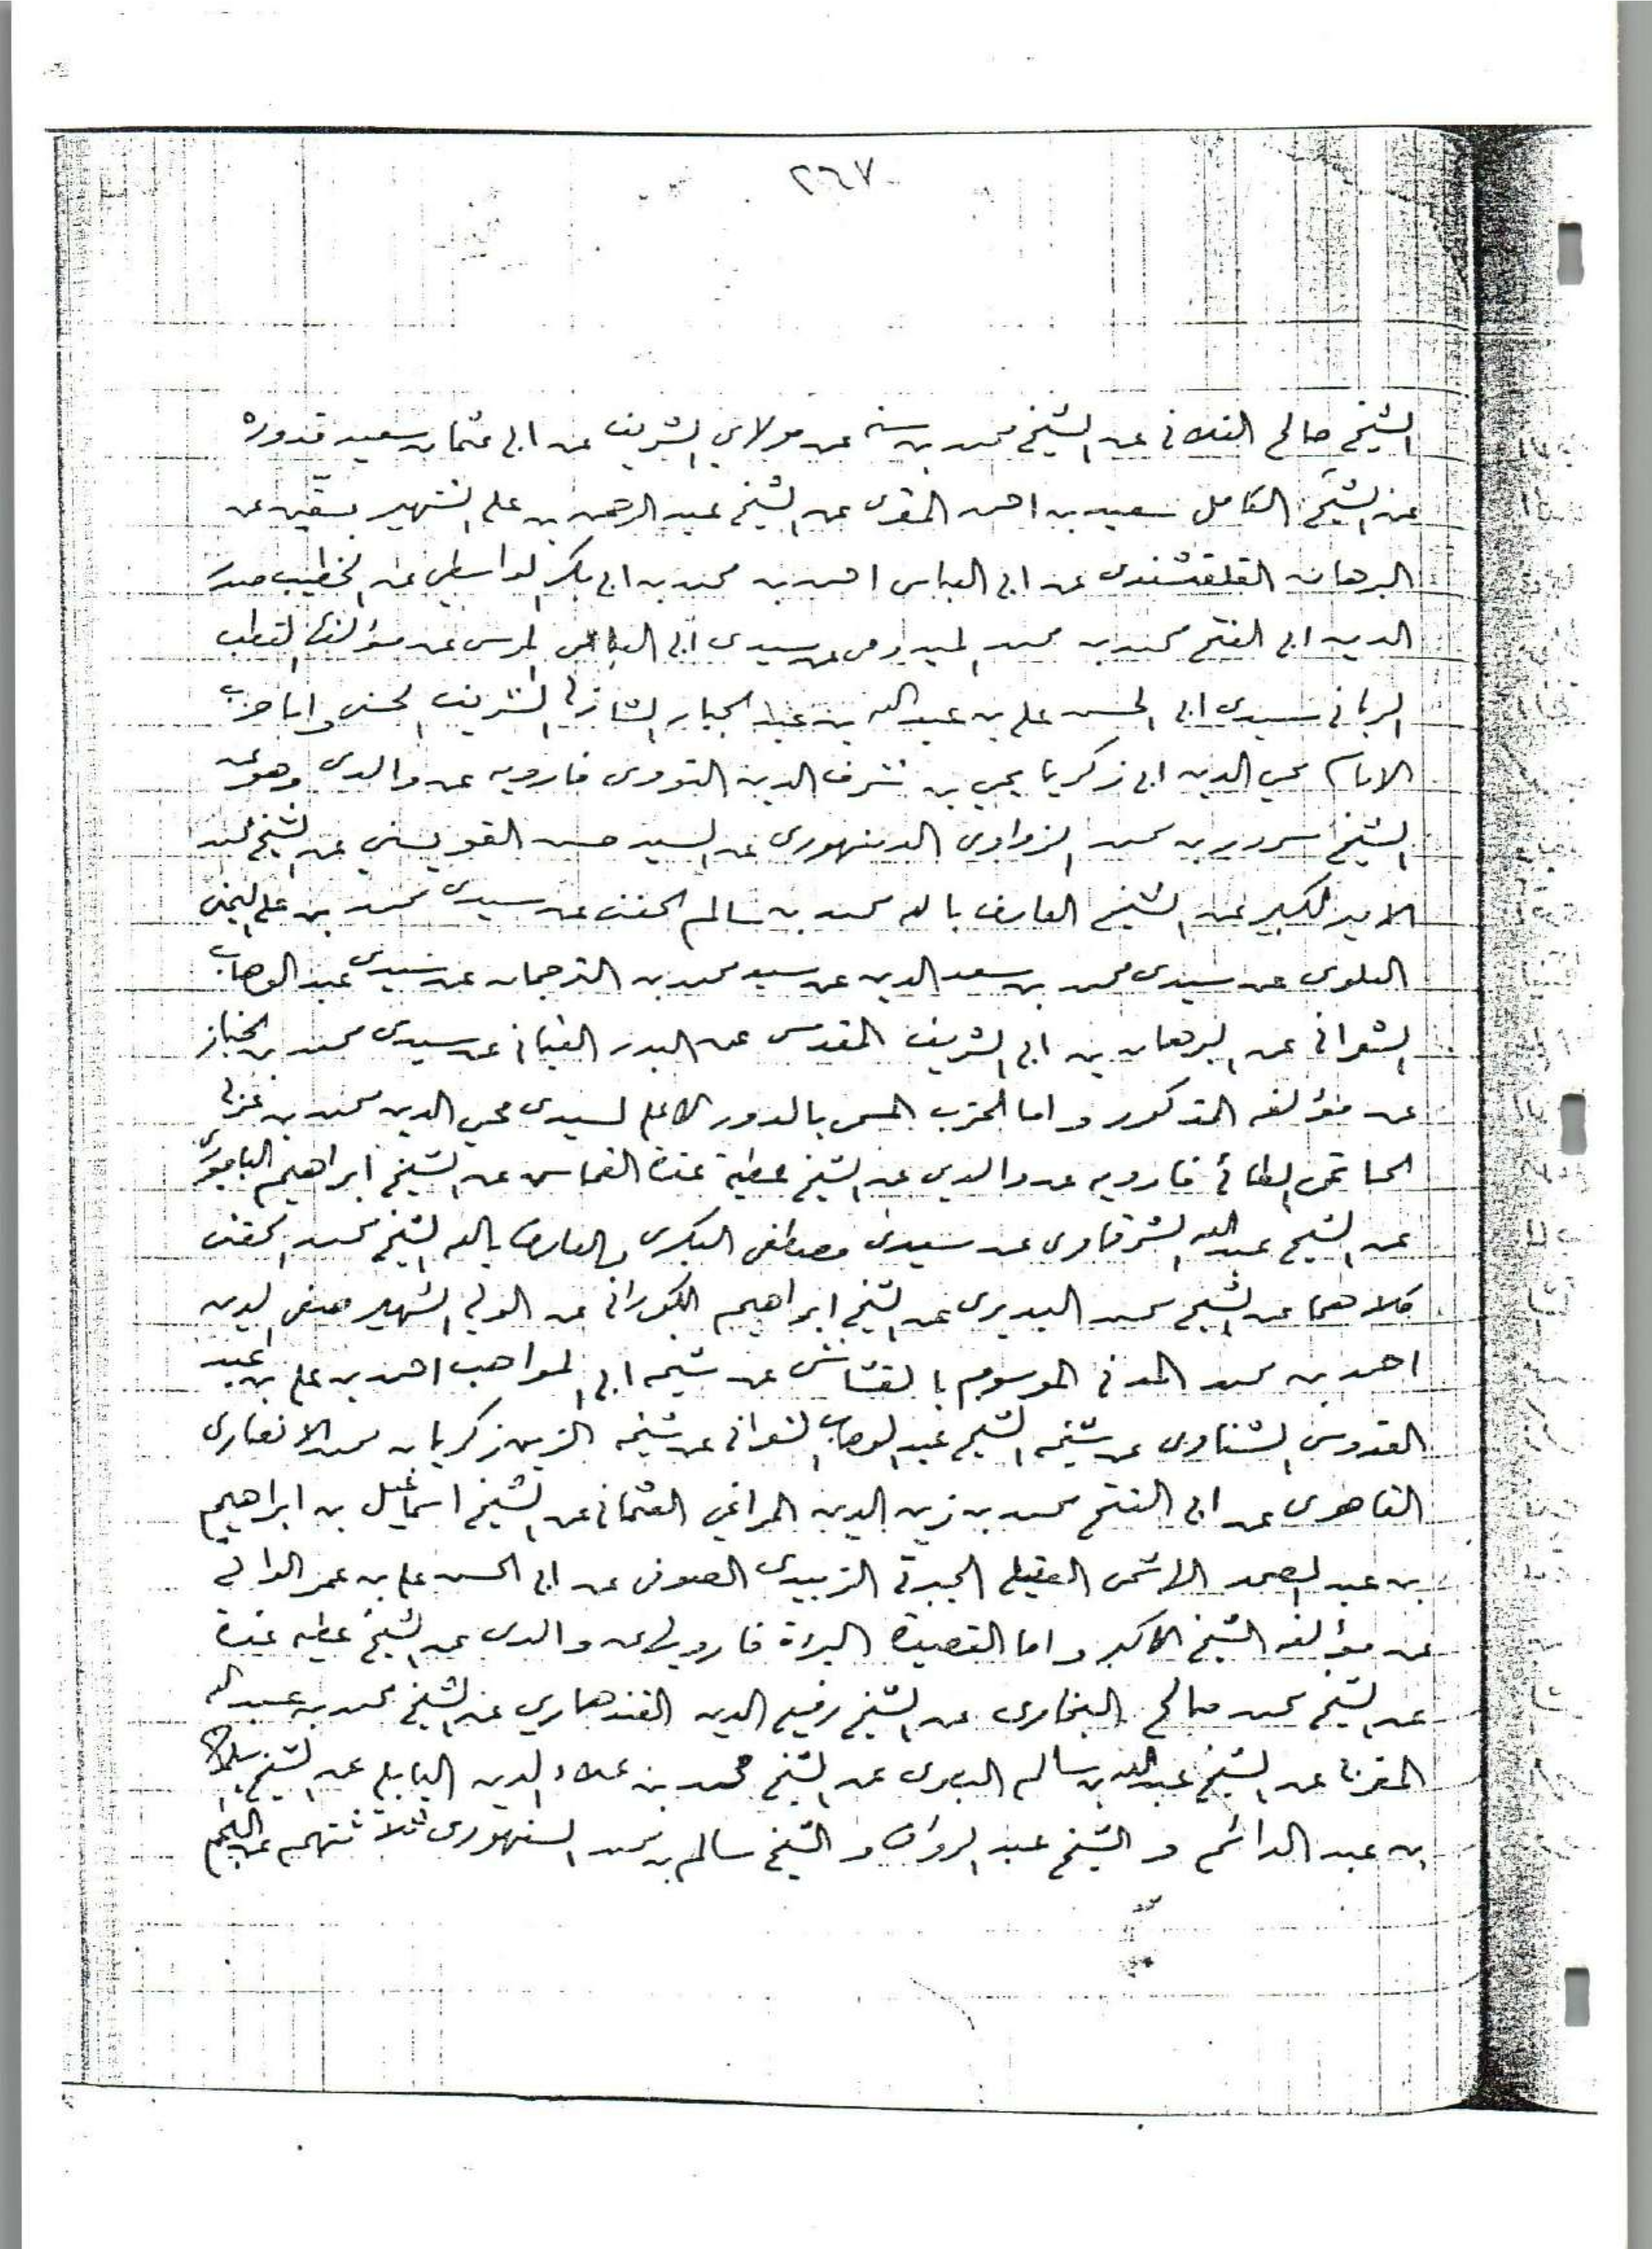 ٢٦٧
الشيخ صالح الفلاني عن الشيخ محمد بن سنه عن مولاي الشريف عن ابي عثمان سعيد قدوره
عن الشيخ الكامل سعيد بن احمد المقرى عن الشيخ عبد الرحمن بن علي الشهير بسقين عن
البرهان القلقشندى عن ابي العباس احمد بن محمد بن ابي بكر الواسطي عن الخطيب صدر
الدين ابي الفتح محمد بن محمد الميدومى عن سيدى ابي العباس المرسى عن مؤلفها القطب
الربانى سيدى ابي الحسن علي بن عبد الله بن عبد الجبار الشاذلي الشريف الحسنى واما حزب
الامام محي الدين ابي زكريا يحي بن شرف الدين النووى فارويه عن والدى وهو عن
الشيخ سرور بن محمد الزواوى الدمنهورى عن السيد حسن القويسني عن الشيخ محمد
الامير الكبير عن الشيخ العارف بالله محمد بن سالم الحفنى عن سيدى محمد بن علي اليمنى
العلوى عن سيدى محمد بن سعد الدين عن سيد محمد بن الترجمان عن سيدى عبد الوهاب
الشعرانى عن البرهان بن ابي الشريف المقدسى عن البدر القبانى عن سيدى محمد بن الخباز
عن مؤلفه المذكور واما الحزب المسمى بالدور الاعلى لسيدى محي الدين محمد بن عربي
الحاتمى الطائي فارويه عن والدي عن الشيخ عطية عن الشيخ ابراهيم الباجوري
عن الشيخ عبد الله الشرقاوى عن سيدى مصطفى البكرى والعارف بالله الشيخ محمد الحفنى
كلاهما عن الشيخ محمد البديرى عن الشيخ ابراهيم الكورانى عن الولي الشهير صفى الدين
احمد بن محمد المدنى الموسوم بالقشاشى عن شيخه ابي المواهب احمد بن علي بن عبد
القدوس الشناوى عن شيخه الشيخ عبد الوهاب الشعرانى عن شيخه الزين زكريا بن محمد الانصارى
القاهرى عن ابي الفتح محمد بن زين الدين المراغي العثمانى عن الشيخ اسماعيل بن ابراهيم
بن عبد الصمد الهاشمى العقيلى الجبرتي الزبيدى الصوفى عن ابي الحسن علي بن عمر الوانى
عن مؤلفه الشيخ الاكبر واما القصيدة البراة فارويها عن والدى عن الشيخ عطيه
عن الشيخ محمد صالح البخارى عن الشيخ رفيع الدين القندهاري عن الشيخ محمد بن عبد الله
المغربى عن الشيخ عبد الله بن سالم البصرى عن الشيخ محمد بن علاء الدين البابلي عن الشيخ
بن عبد الدائم و الشيخ عبد الرواف و الشيخ سالم بن محمد السنهورى ثلاثتهم عن النجم